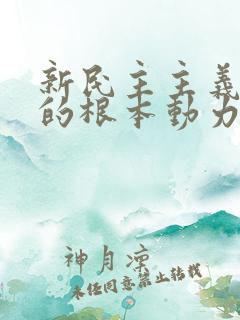 新民主主義
的根本動力
神月凉
未经同意禁止转载